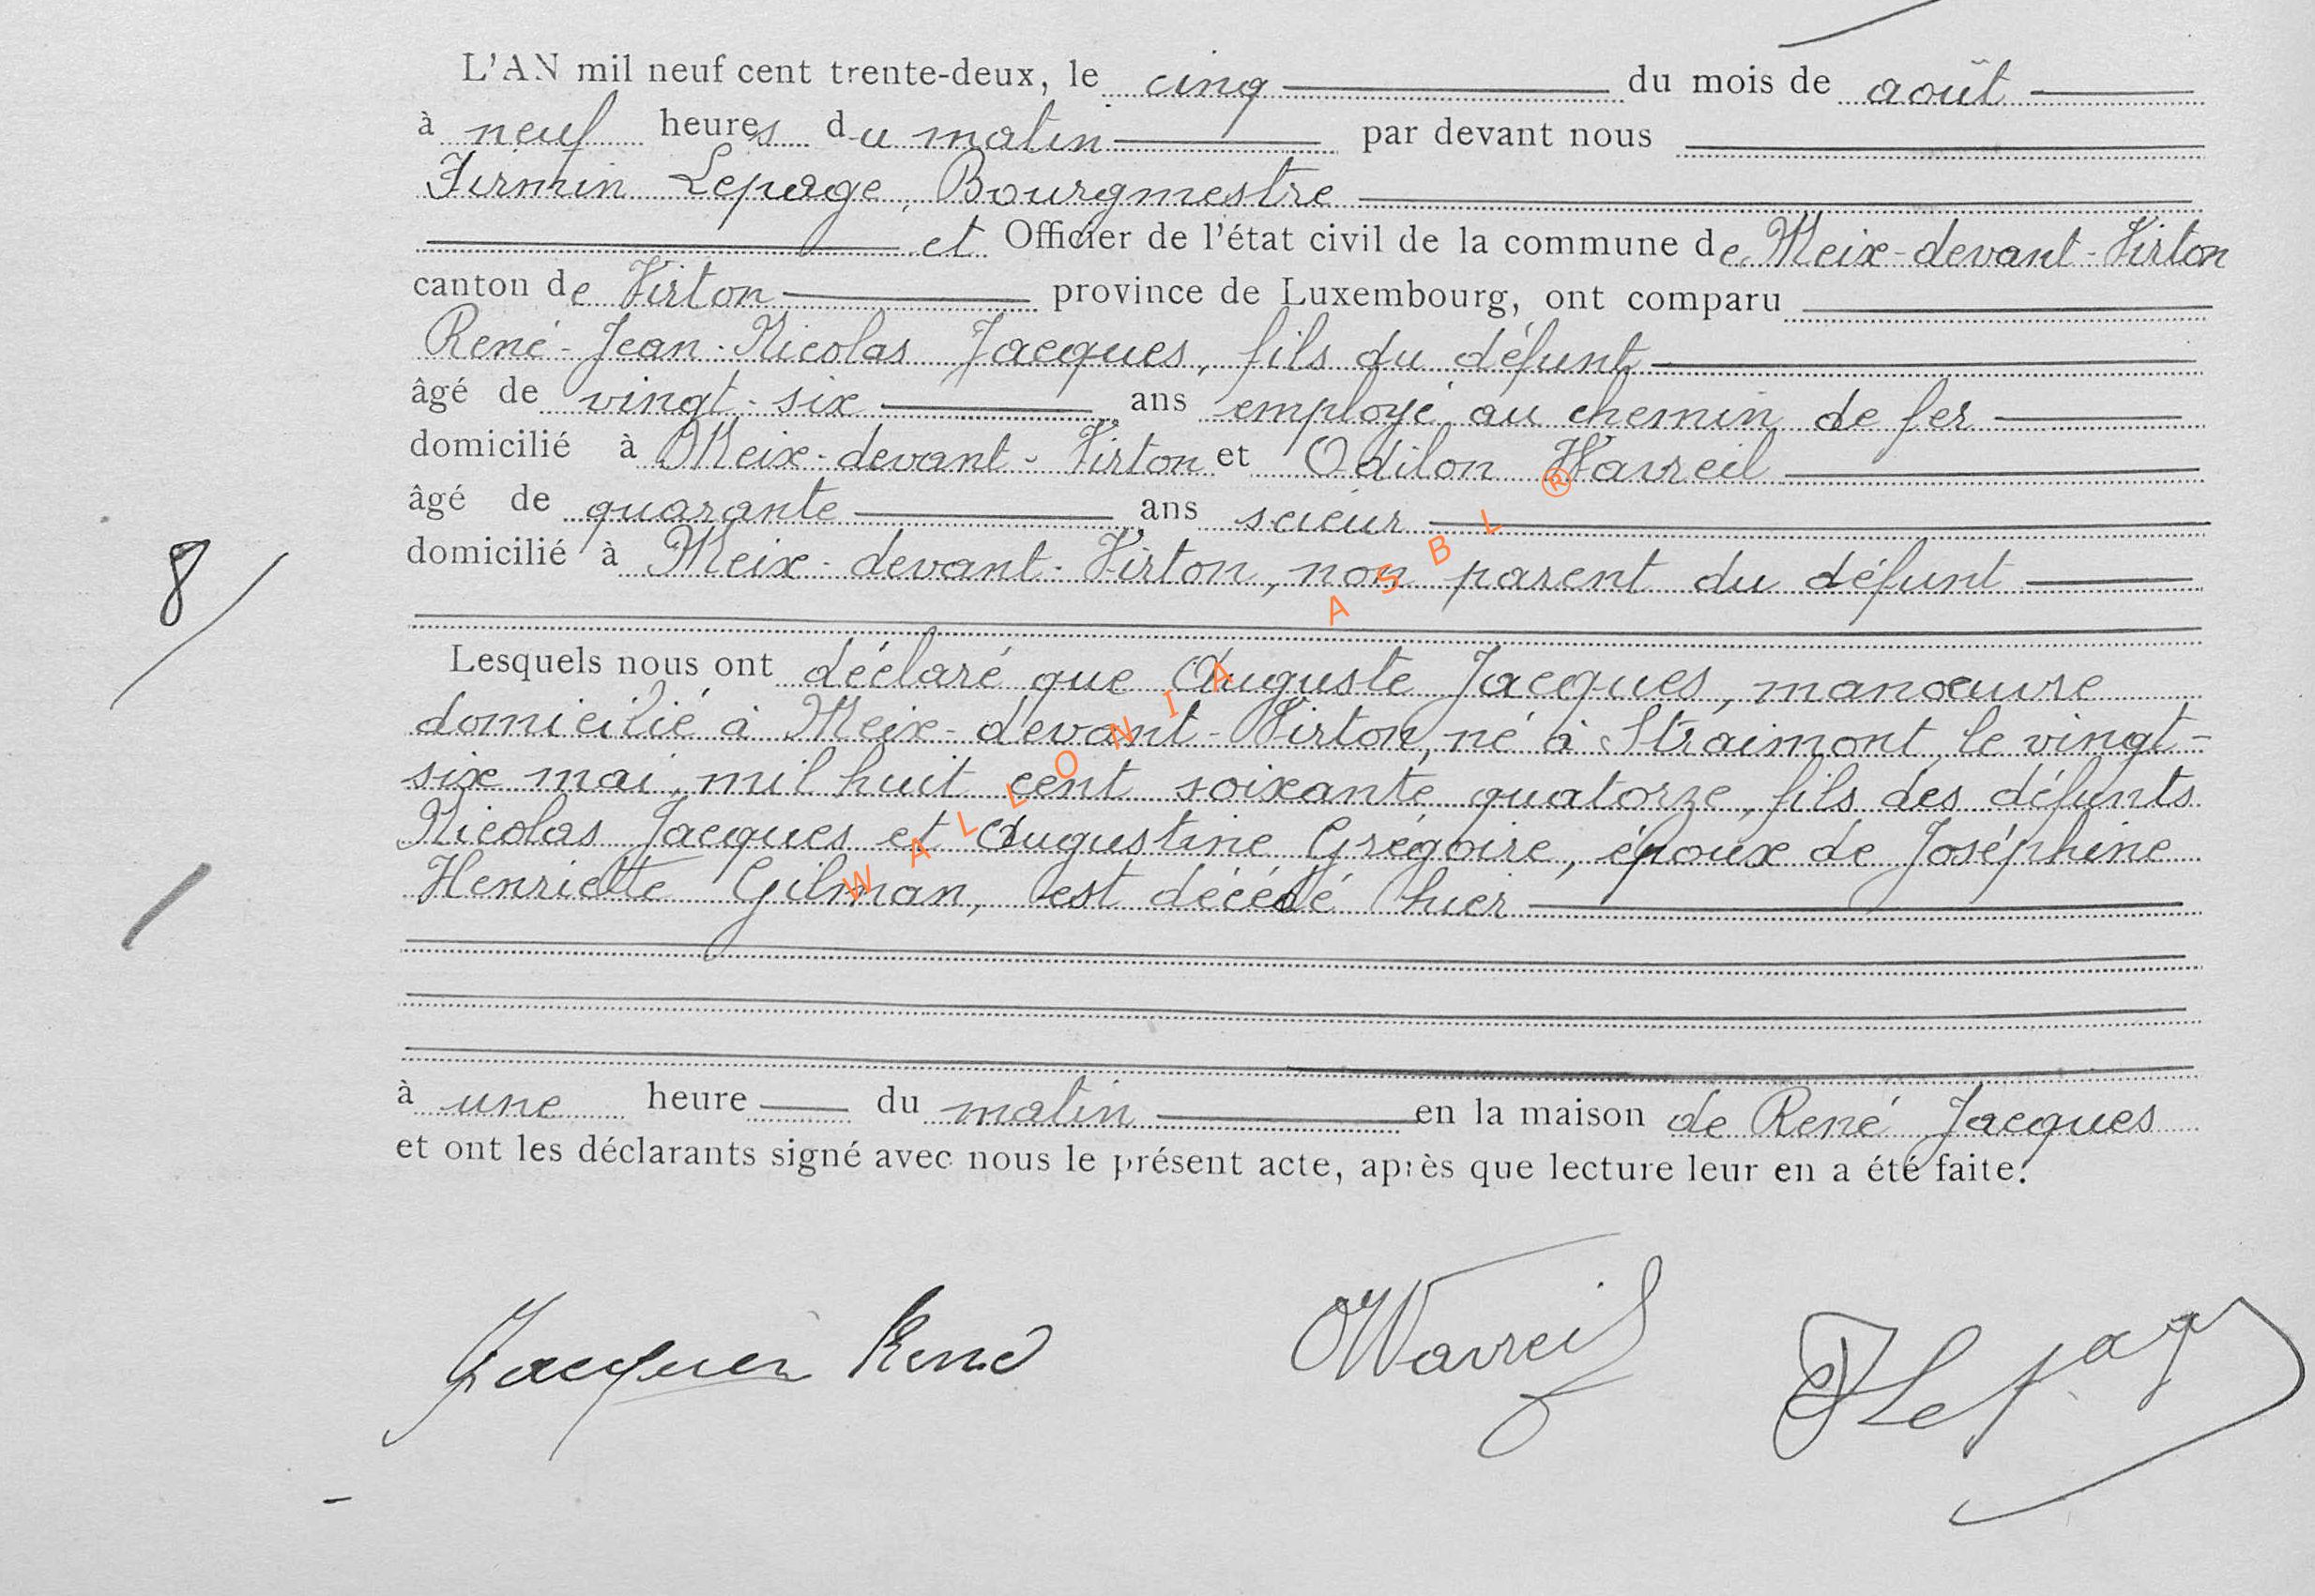 L'AN mil neuf cent trente-deux, le cinq du mois de août
à neuf heures du matin par devant nous
Firmin Lepage, Bourgmestre
et Officier de l'état civil de la commune de Meix-devant-Virton
canton de Virton province de Luxembourg, ont comparu
René-Jean-Nicolas Jacques, fils du défunt
âgé de vingt-six ans employé au chemin de fer
domicilié à Meix-devant-Virton et Odilon Wavreil
âgé de quarante ans scieur
domicilié à Meix-devant-Virton, non parent du défunt
8
Lesquels nous ont déclaré que Auguste Jacques, manœuvre
domicilié à Meix-devant-Virton, né à Straimont, le vingt-
six mai, mil huit cent soixante quatorze, fils des défunts
Nicolas Jacques et Augustine Grégoire, époux de Joséphine
Henriette Gilman, est décédé hier
à une heure du matin en la maison de René Jacques
et ont les déclarants signé avec nous le présent acte, après que lecture leur en a été faite.
Jacques René OWavreil FLepage
WALLONIA ASBL ®